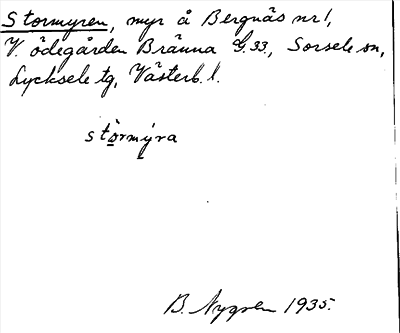 Stormyren, myr å Bergnäs nr 1,
V. ödegården Bränna G.33, Sorsele sn,
Lycksele tg, Västerb. l.
stòrmýra
B. Nygren 1935.